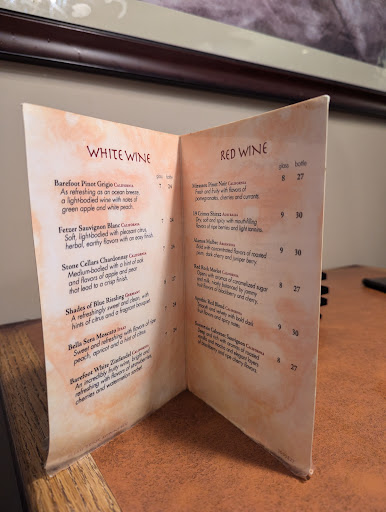 WHITE WINE
glass bottle
Barefoot Pinot Grigio CALIFORNIA 7 24
As refreshing as an ocean breeze,
a light-bodied wine with notes of
green apple and white peach.
Fetzer Sauvignon Blanc CALIFORNIA 7 24
Soft, light-bodied with pleasant citrus,
herbal, earthy flavors with an easy finish.
Stone Cellars Chardonnay CALIFORNIA 7 24
Medium-bodied with a hint of oak
and flavors of apple and pear
that lead to a crisp finish.
Shades of Blue Riesling GERMANY 24
A refreshingly sweet and clean, with
hints of citrus and a fragrant bouquet.
Bella Sera Moscato ITALY 24
Sweet and refreshing with flavors of ripe
peach, apricot and a hint of
Barefoot White Zinfandel CALIFORNIA 24
An incredibly fruity wine, bright and
refreshing with flavors of strawberries,
cherries and watermelon
RED WINE
glass bottle
Pinot Noir CALIFORNIA 8 27
Fresh and fruity with flavors of
pomegranates, cherries and currants.
Shiraz AUSTRALIA 9 30
Dry, soft and spicy with mouthfilling
flavors of ripe berries and light tannins.
Malbec ARGENTINA 9 30
Bold with concentrated flavors of roasted
plum, dark cherry and juniper berry.
Red Rock Merlot CALIFORNIA 8 27
Opens with aromas of caramelized sugar
and milk, nicely balanced by jammy
fruit flavors of blackberry and cherry.
Red Blend CALIFORNIA 9 30
Smooth and velvety with bold dark
fruit flavors and spicy notes.
Cabernet Sauvignon CALIFORNIA 8 27
of blackberry and ripe cherry flavors.